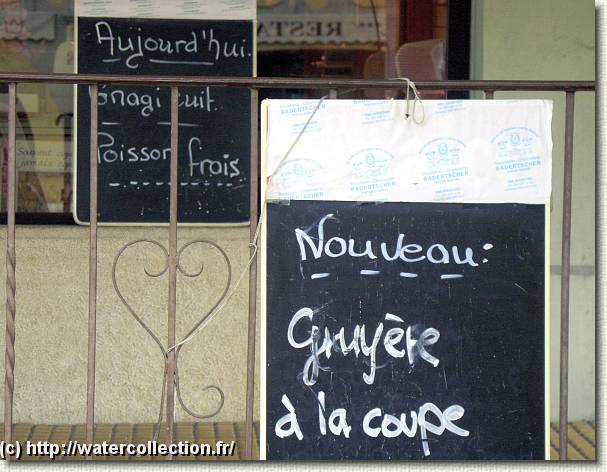 Aujourd'hui.
Poisson frais
RESTA
BADERTSCHER
BADERTSCHER
BADERTSCHER
Nouveau:
Gruyère
à la coupe
(c) http://watercollection.fr/